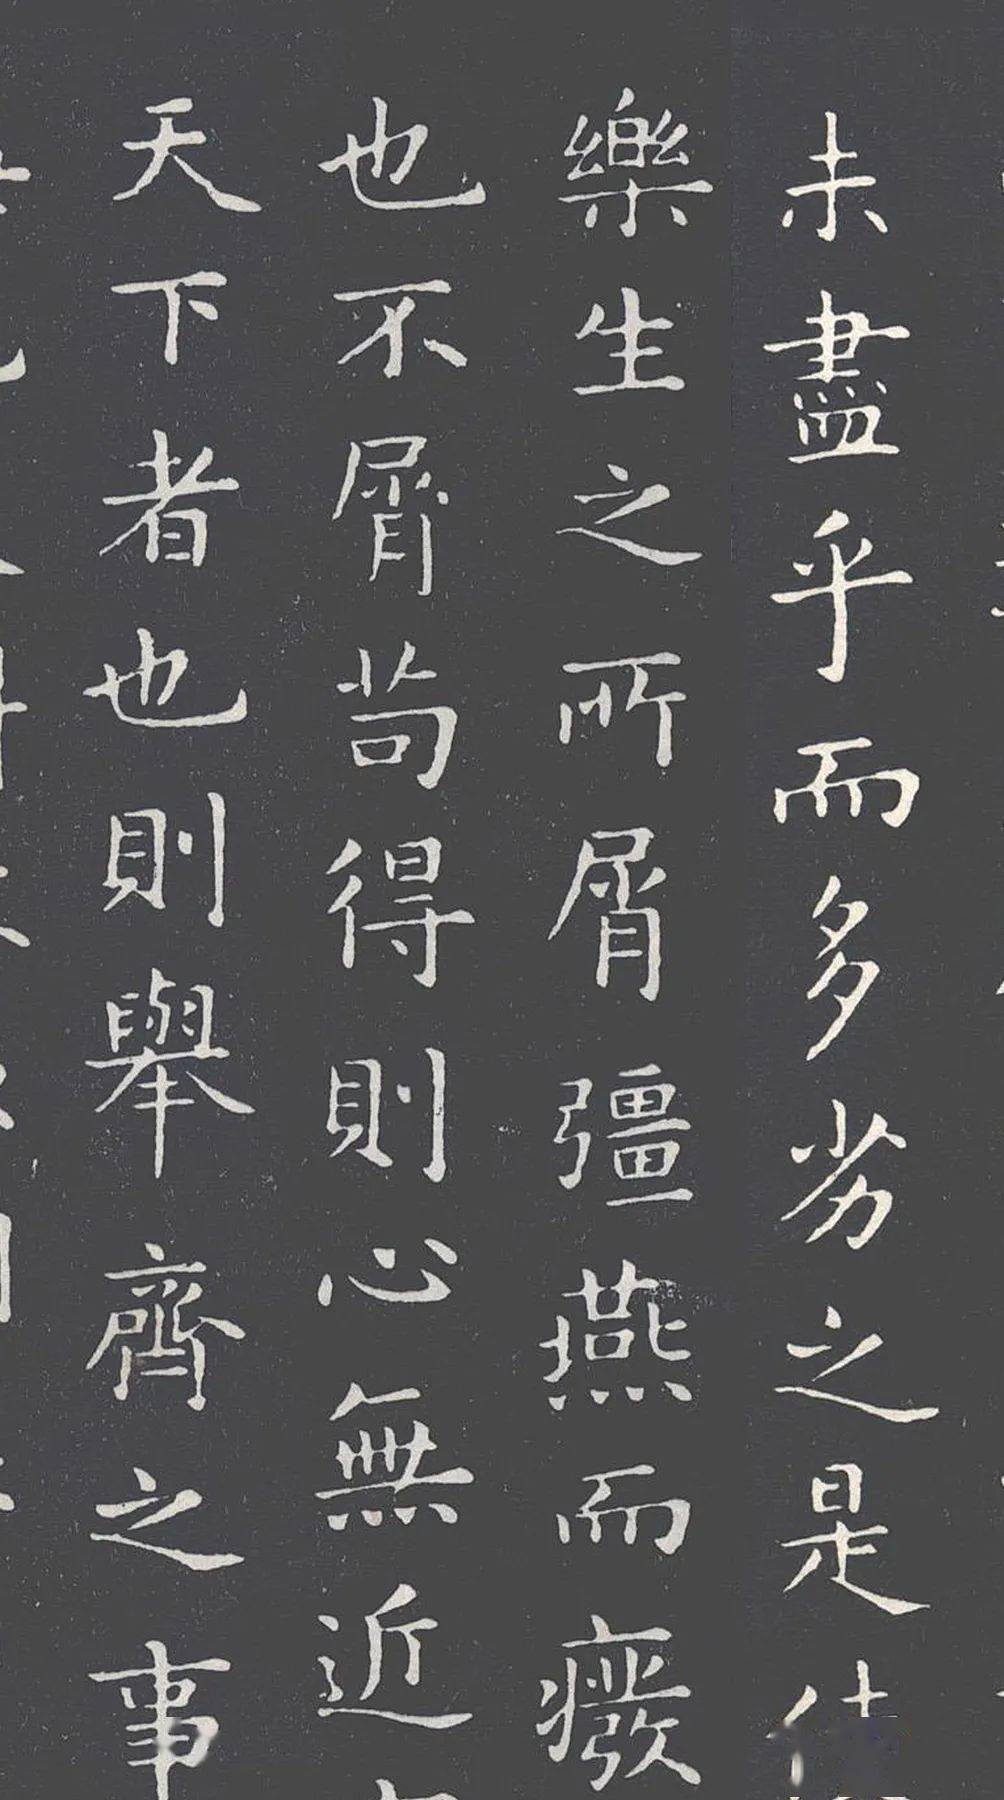 未盡乎而多劣之是
樂生之所屑彊燕而癈
也不屑苟得則心無近
天下者也則舉齊之事